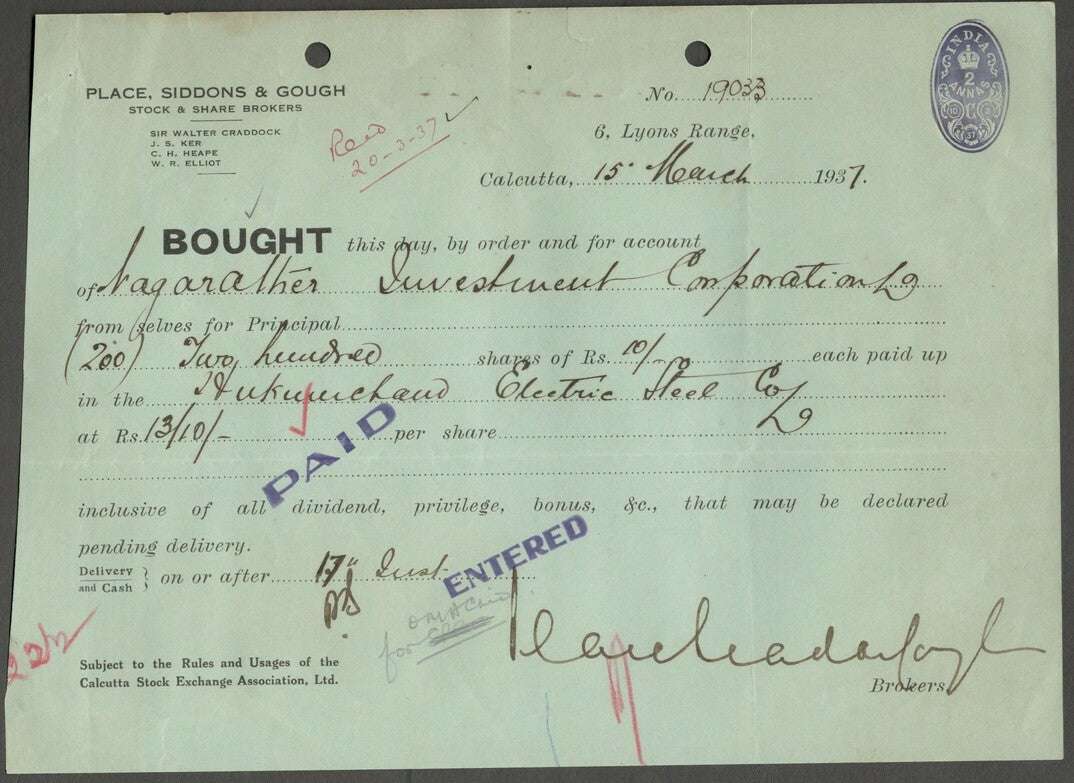 PLACE, SIDDONS & GOUGH
STOCK & SHARE BROKERS
SIR WALTER CRADDOCK
J. S. KER
C. H. HEAPE
W. R. ELLIOT
20-3-37
No. 19033
6, Lyons Range,
Calcutta, 15 March 1937.
INDIA
2
ANNAS
BOUGHT this day, by order and for account
of Nagarather Investment Corporation Ld
from selves for Principal
(200) Two hundred shares of Rs. 10/- each paid up
in the Hukumchand Electric Steel Co Ld
at Rs. 13/10/- per share
PAID
inclusive of all dividend, privilege, bonus, &c., that may be declared
pending delivery.
Delivery and Cash } on or after 17" Inst
ENTERED
for
22/2
Subject to the Rules and Usages of the
Calcutta Stock Exchange Association, Ltd.
Brokers